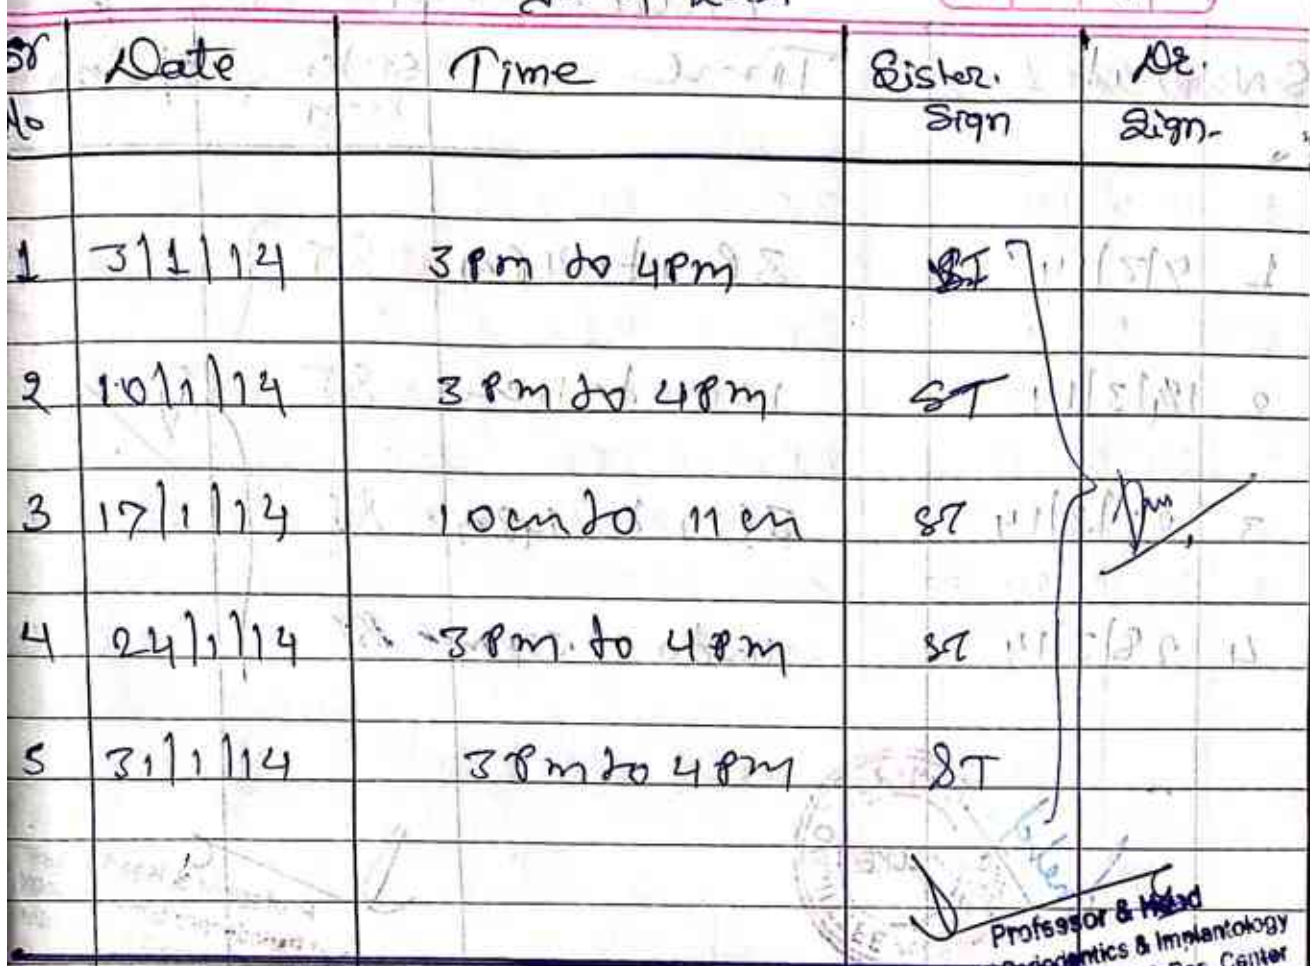 Sr Date Time Sister. Dr.
No Sign Sign.
1 3/1/14 3pm to 4pm ST
2 10/1/14 3pm to 4pm ST
3 17/1/14 10am to 11am ST
4 24/1/14 3pm. to 4pm ST
5 31/1/14 3pm to 4pm ST
Professor & Head
Periodontics & Implantology
Center